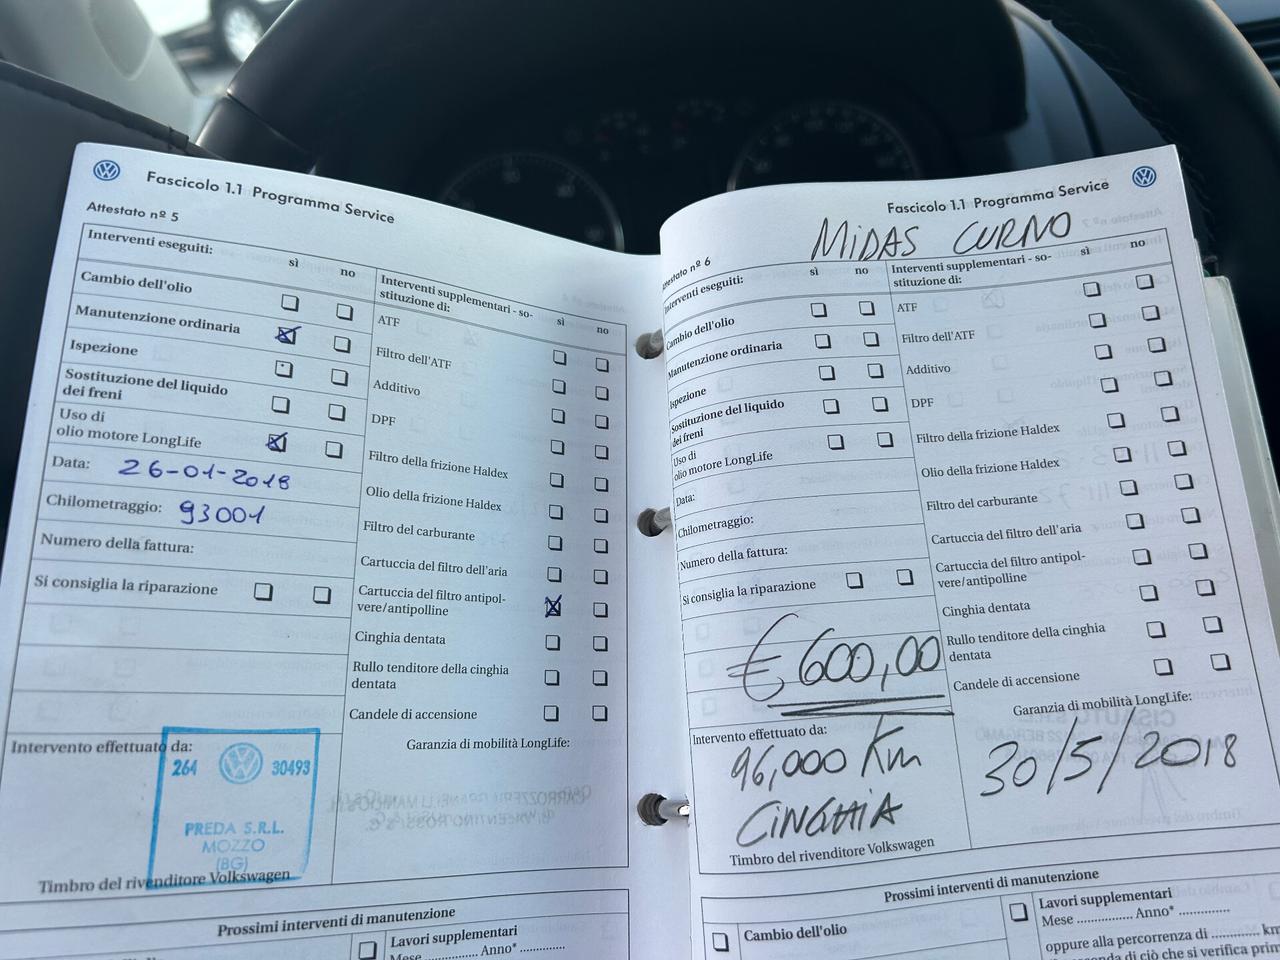 Fascicolo 1.1 Programma Service
Attestato nº 5
Interventi eseguiti:
sì no
Cambio dell'olio
Manutenzione ordinaria
Ispezione
Sostituzione del liquido
dei freni
Uso di
olio motore LongLife
Data: 26-01-2018
Chilometraggio: 93001
Numero della fattura:
Si consiglia la riparazione
Intervento effettuato da:
264 30493
PREDA S.R.L.
MOZZO
(BG)
Timbro del rivenditore Volkswagen
Interventi supplementari - so-
stituzione di:
sì no
ATF
Filtro dell'ATF
Additivo
DPF
Filtro della frizione Haldex
Olio della frizione Haldex
Filtro del carburante
Cartuccia del filtro dell'aria
Cartuccia del filtro antipol-
vere/antipolline
Cinghia dentata
Rullo tenditore della cinghia
dentata
Candele di accensione
Garanzia di mobilità LongLife:
Prossimi interventi di manutenzione
Lavori supplementari
Mese Anno* ...............
Fascicolo 1.1 Programma Service
MIDAS CURNO
Attestato nº 6
Interventi eseguiti:
sì no
Cambio dell'olio
Manutenzione ordinaria
Ispezione
Sostituzione del liquido
dei freni
Uso di
olio motore LongLife
Data:
Chilometraggio:
Numero della fattura:
Si consiglia la riparazione
€ 600,00
Intervento effettuato da:
96,000 Km
CINGHIA
Timbro del rivenditore Volkswagen
Interventi supplementari - so-
stituzione di:
sì no
ATF
Filtro dell'ATF
Additivo
DPF
Filtro della frizione Haldex
Olio della frizione Haldex
Filtro del carburante
Cartuccia del filtro dell'aria
Cartuccia del filtro antipol-
vere/antipolline
Cinghia dentata
Rullo tenditore della cinghia
dentata
Candele di accensione
Garanzia di mobilità LongLife:
30/5/2018
Prossimi interventi di manutenzione
Cambio dell'olio
Lavori supplementari
Mese ............... Anno* .............
oppure alla percorrenza di ............ km
di ciò che si verifica prim